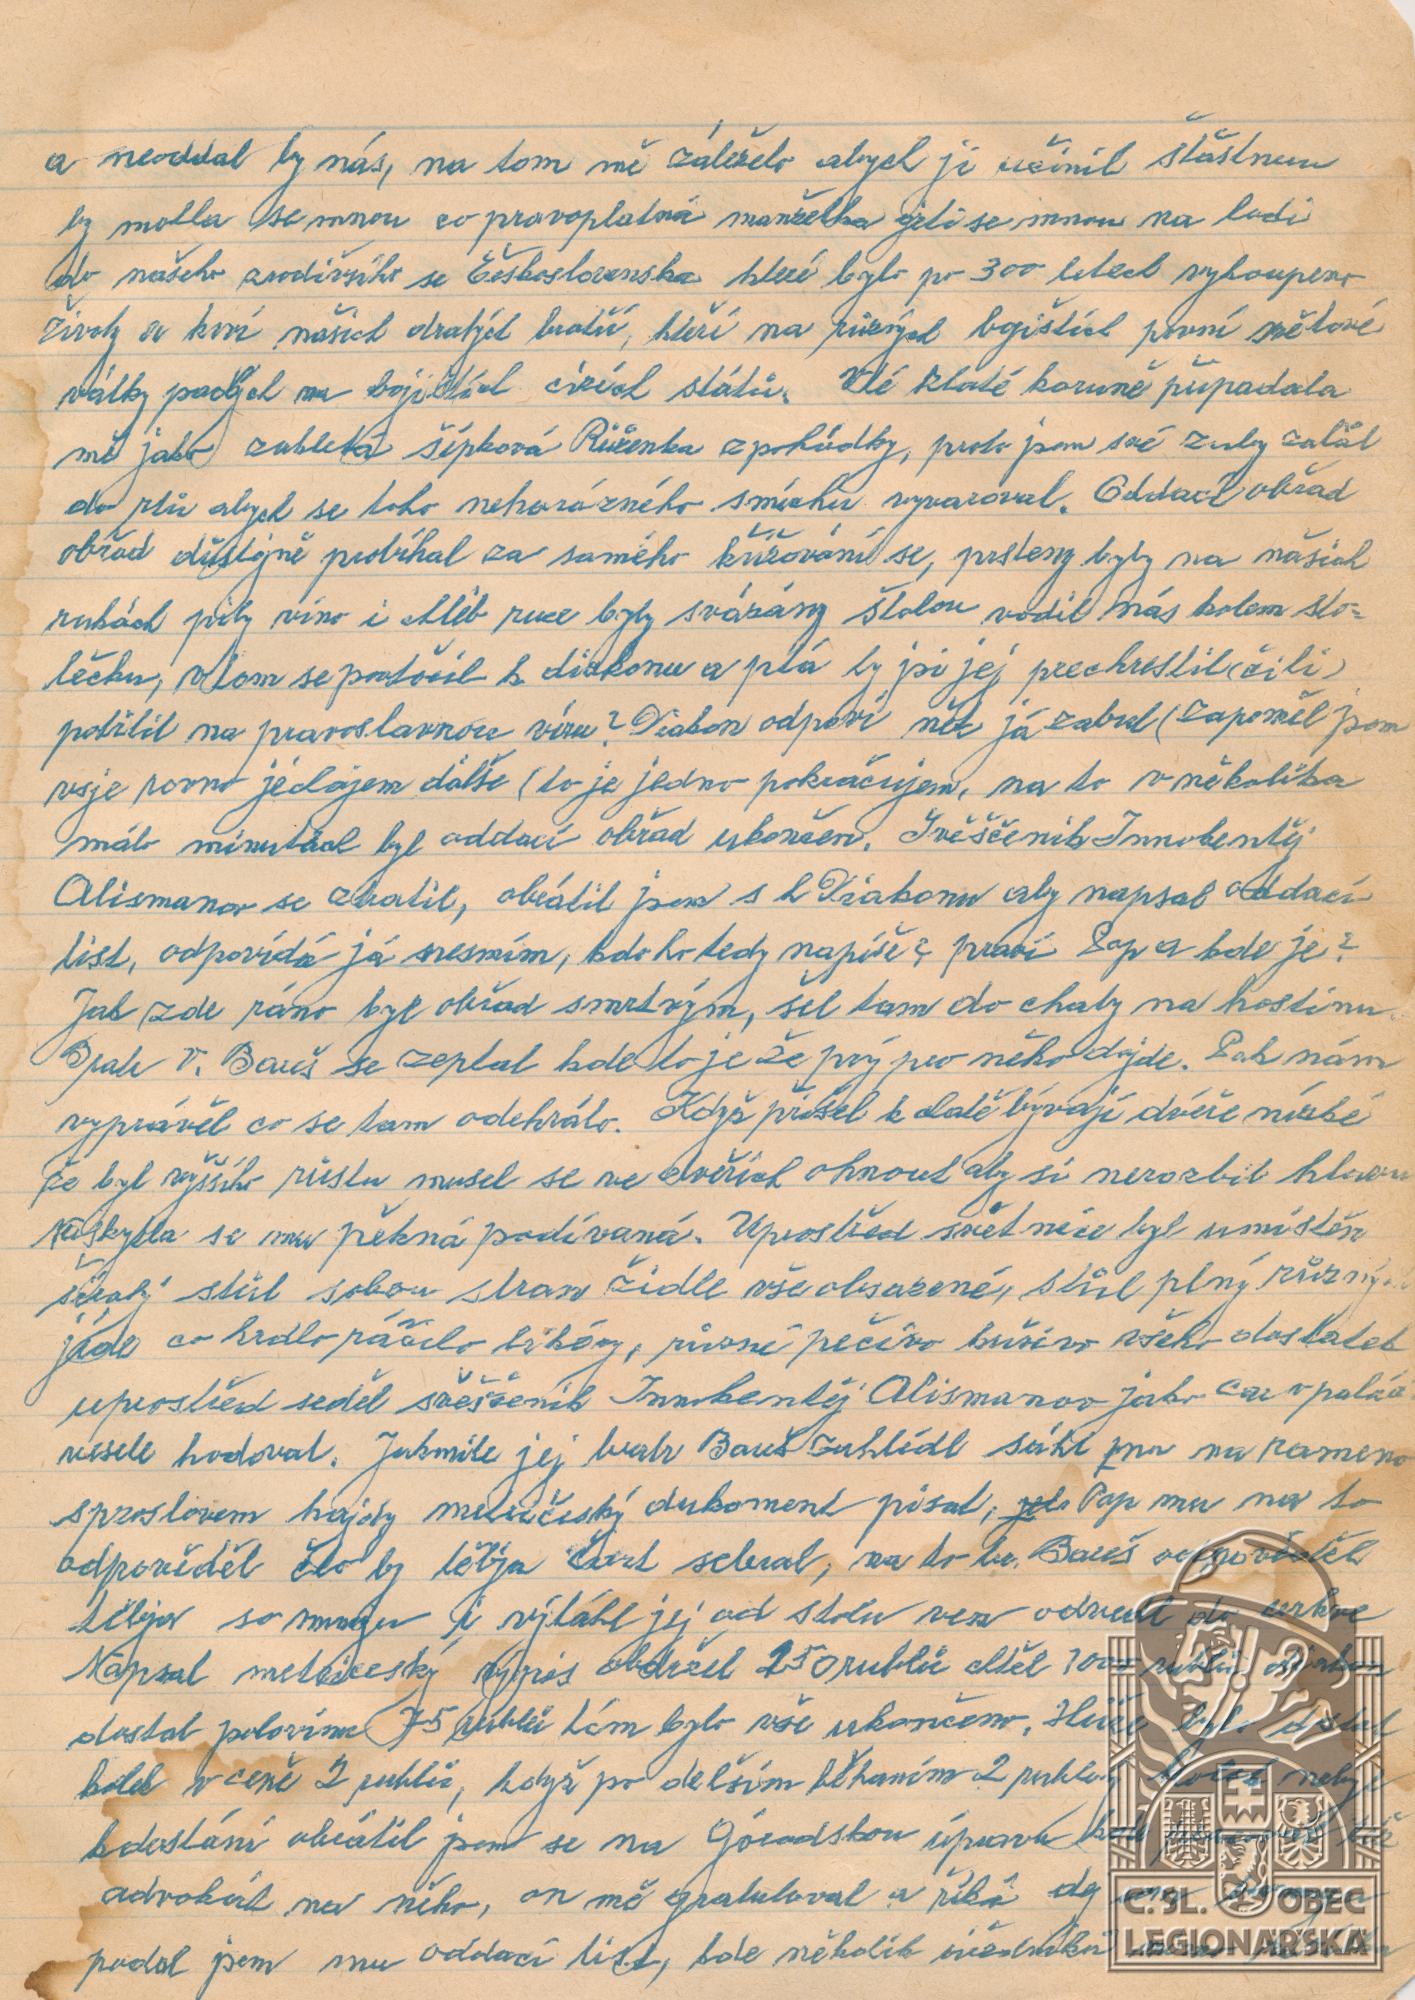 a neoddal by nás, na tom mě záleželo abych ji učinil šťastnou
by mohla se mnou co pravoplatná manželka jeti se mnou na lodi
do našeho zrodivšího se Československa které bylo po 300 letech vykoupeno
životy a krví našich drahých bratří, kteří na různých bojištích první světové
války padlých na bojištích cizích států. V té zlaté koruně připadala
mě jako zakletá šípková Růženka z pohádky, proto jsem své zuby zaťal
do rtů abych se toho nehorázného smíchu vyvaroval. Oddací obřad
obřad důstojně probíhal za samého křižování se, prsteny byly na našich
rukách pily víno i chléb ruce byly svázány štolou vodil nás kolem sto-
lečku, v tom se pootočil k diakonu a ptá by jsi jej prechrestil (čili)
pokřtil na pravoslavnou víru? Diakon odpoví nět já zabul (zapoměl jsem
vsje rovno jédajem dálše (to je jedno pokračujem, na to v několika
málo minutách byl oddací obřad ukončen. Svěščenik Innokentěj
Alismanov se ztratil, obrátil jsem s k Diakonu aby napsal oddací
list, odpovídá já nesmím, kdo ho tedy napíše? praví Pop a kde je?
Jak zde ráno byl obřad smrtným, šel tam do chaty na hostinu.
Bratr V. Bareš se zeptal kde to je že prý pro něho dojde. Pak nám
vyprávěl co se tam odehrálo. Když přišel k chatě bývají dvéře nízké
že byl vyššího růstu musel se ve dvéřích ohnout aby si nerozbil hlavu
Naskytla se mu pěkná podívaná. Uprostřed světnice byl umístěn
široký stůl sobou stran židle vše obsazené, stůl plný různých
jídel co hrdlo ráčilo likéry, různé pečivo kuřivo všeho dostatek
uprostřed seděl svěščenik Innokentěj Alismanov jako car v paláci
vesele hodoval. Jakmile jej bratr Bareš zuhlédl sáhl mu na rameno
s proslovem hajdy metričeský dukoment písat, Pop mu na to
odpověděl čto by těbja čort sebral, na to br. Bareš odpověděl
těbja so mnoju i výtáhl jej od stolu ven odvedl do cerkve
Napsal metričeský výpis obdržel 250 rublů chtěl 1000 rublů, diakon
dostal polovinu 75 rublů tím bylo vše ukončeno. bylo dostal
kolek v ceně 2 rublů, když po delším běhaním 2 rublový kolek nebyl
k dostání obrátil jsem se na Górodskou úpravu
advokát na něho, on mě gratuloval a říká
podal jsem mu oddací list, kde několik úředníků
C. SL. OBEC
LEGIONÁŘSKÁ